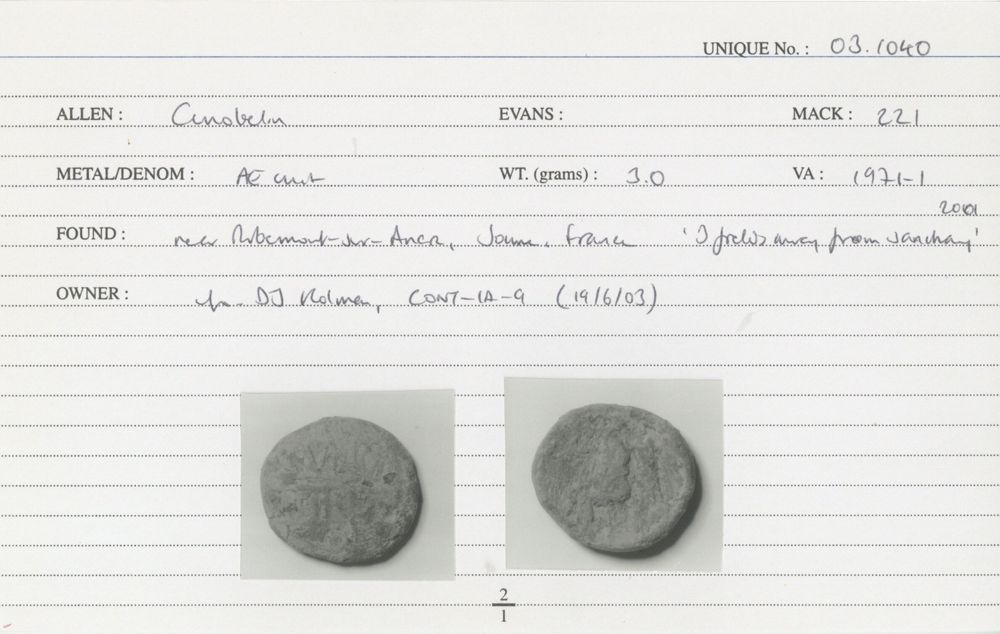 UNIQUE No. : 03.1040
ALLEN : Cunobelin EVANS : MACK : 221
METAL/DENOM : AE unit WT. (grams) : 3.0 VA : 1971-1
2001
FOUND : near Ribemont-sur-Ancre, Somme, France '3 fields away from sanctuary'
OWNER : DJ Holman, CONT-IA-9 (19/6/03)
2
1